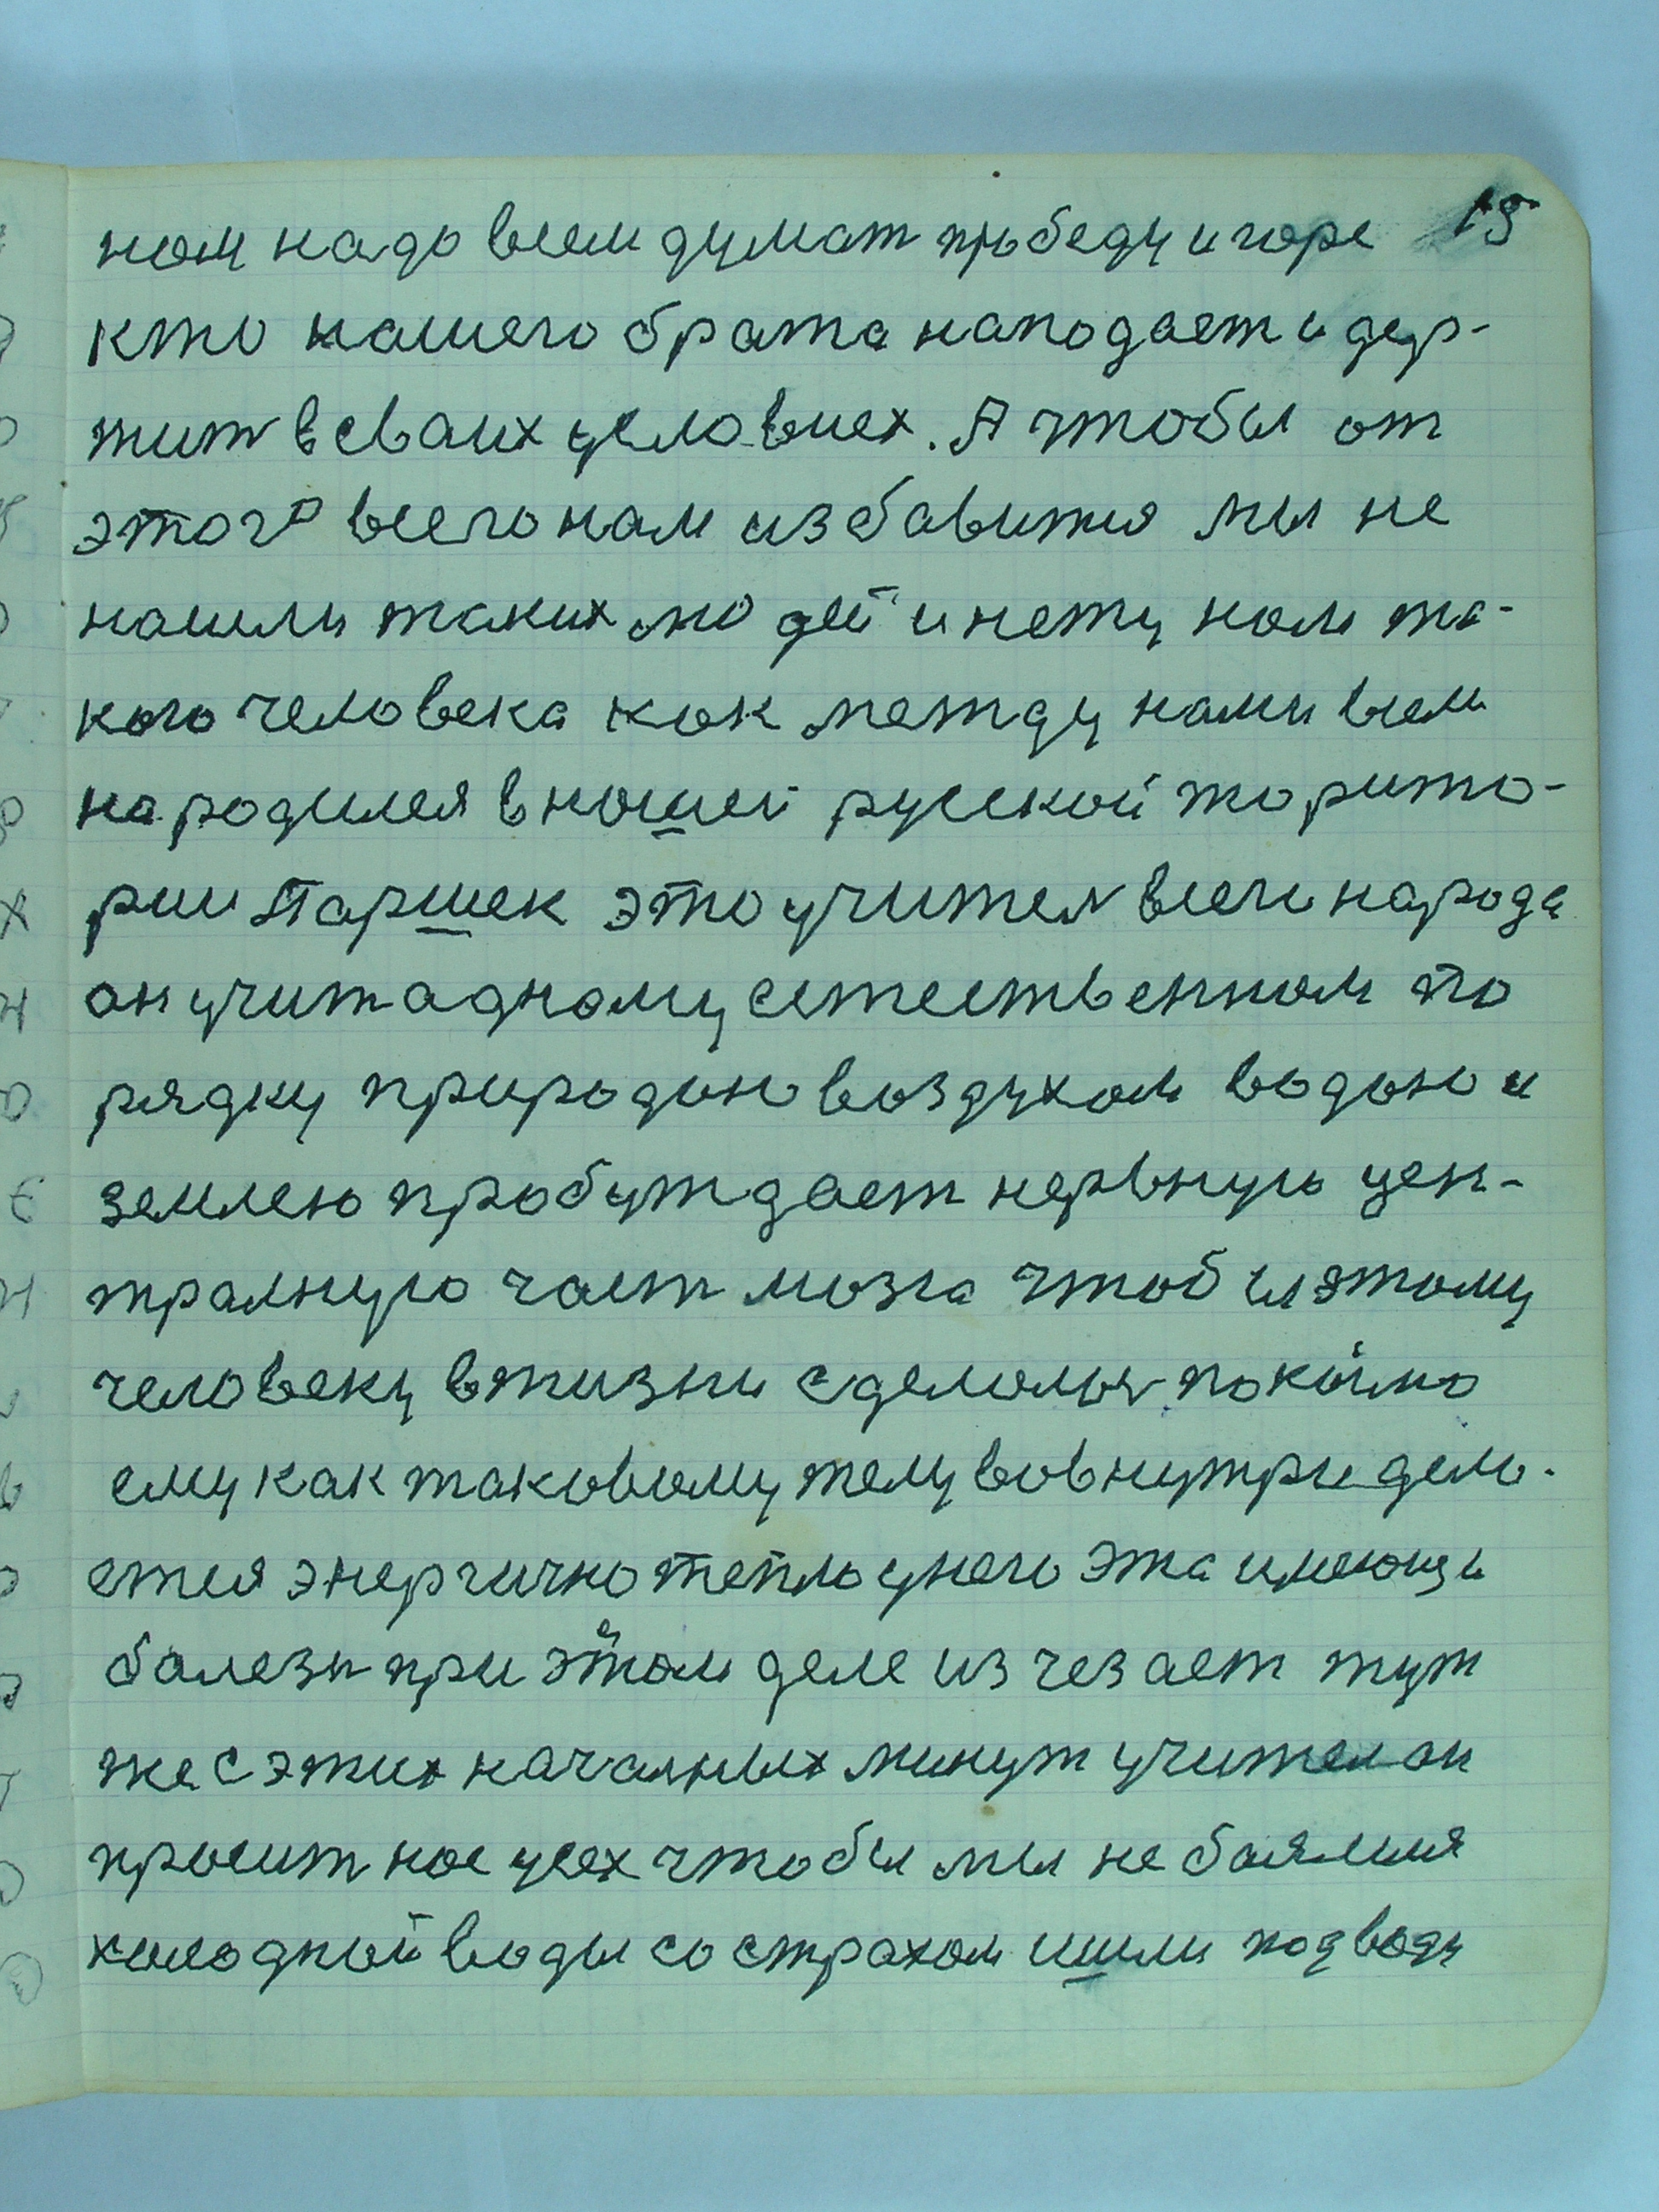 нам надо всем думат про беду и горе 15
кто нашего брата наподает и дер-
жит в сваих условиех. А чтобы от
этого всего нам избавится мы не
нашли таких людей и нету нам та-
кого человека как между нами всем
народился в нашей русской тарито-
рии Паршек это учител всего народа
он учит адному естественном по
рядку природою воздухом водою и
землею пробуждает нервную цен-
тралную част мозга чтобы этому
человеку в жизни сделалося покойно
ему как таковому телу вовнутри дела-
ется энергично тепло у него эта имеющи
балезн при этом деле изчезает тут
же с этих началных минут учител он
просит нас усех чтобы мы не боялися
холодной воды со страхом ишли под воду